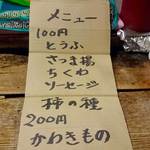 メニュー
100円
とうふ
さつま揚
ちくわ
ソーセージ
柿の種
200円
かわきもの